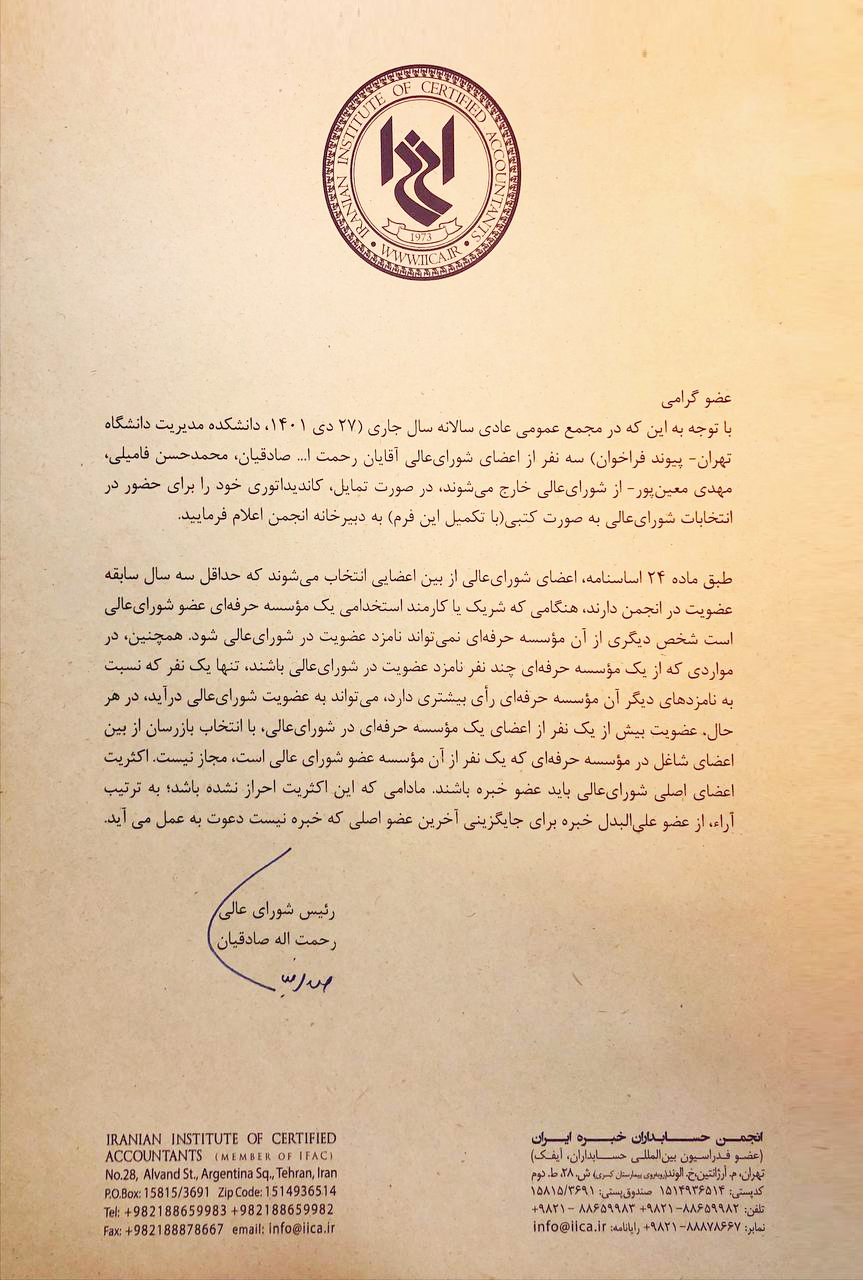 IRANIAN INSTITUTE OF CERTIFIED ACCOUNTANTS
1973
WWW.IICA.IR
عضو گرامی
با توجه به این که در مجمع عمومی عادی سالانه سال جاری (۲۷ دی ۱۴۰۱، دانشکده مدیریت دانشگاه
تهران- پیوند فراخوان) سه نفر از اعضای شورای‌عالی آقایان رحمت ا... صادقیان، محمدحسن فامیلی،
مهدی معین‌پور- از شورای‌عالی خارج می‌شوند، در صورت تمایل، کاندیداتوری خود را برای حضور در
انتخابات شورای‌عالی به صورت کتبی(با تکمیل این فرم) به دبیرخانه انجمن اعلام فرمایید.
طبق ماده ۲۴ اساسنامه، اعضای شورای‌عالی از بین اعضایی انتخاب می‌شوند که حداقل سه سال سابقه
عضویت در انجمن دارند، هنگامی که شریک یا کارمند استخدامی یک مؤسسه حرفه‌ای عضو شورای‌عالی
است شخص دیگری از آن مؤسسه حرفه‌ای نمی‌تواند نامزد عضویت در شورای‌عالی شود. همچنین، در
مواردی که از یک مؤسسه حرفه‌ای چند نفر نامزد عضویت در شورای‌عالی باشند، تنها یک نفر که نسبت
به نامزدهای دیگر آن مؤسسه حرفه‌ای رأی بیشتری دارد، می‌تواند به عضویت شورای‌عالی درآید، در هر
حال، عضویت بیش از یک نفر از اعضای یک مؤسسه حرفه‌ای در شورای‌عالی، با انتخاب بازرسان از بین
اعضای شاغل در مؤسسه حرفه‌ای که یک نفر از آن مؤسسه عضو شورای عالی است، مجاز نیست. اکثریت
اعضای اصلی شورای‌عالی باید عضو خبره باشند. مادامی که این اکثریت احراز نشده باشد؛ به ترتیب
آراء، از عضو علی‌البدل خبره برای جایگزینی آخرین عضو اصلی که خبره نیست دعوت به عمل می آید.
رئیس شورای عالی
رحمت اله صادقیان
IRANIAN INSTITUTE OF CERTIFIED
ACCOUNTANTS (MEMBER OF IFAC)
No.28, Alvand St., Argentina Sq., Tehran, Iran
P.O.Box: 15815/3691 Zip Code: 1514936514
Tel: +982188659983 +982188659982
Fax: +982188878667 email: info@iica.ir
انجمن حسابداران خبره ایران
(عضو فدراسیون بین‌المللی حسابداران، آیفک)
تهران، م. آرژانتین،خ. الوند(روبه‌روی بیمارستان کسری) ش. ۲۸، ط. دوم
کدپستی: ۱۵۱۴۹۳۶۵۱۴ صندوق‌پستی: ۱۵۸۱۵/۳۶۹۱
تلفن: ۸۸۶۵۹۹۸۲-۹۸۲۱+ ۸۸۶۵۹۹۸۳ -۹۸۲۱+
نمابر: ۸۸۸۷۸۶۶۷-۹۸۲۱+ رایانامه: info@iica.ir